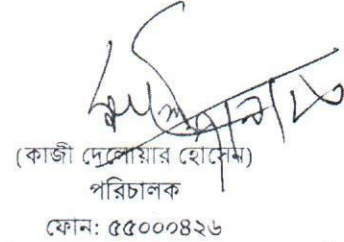 (কাজী দেলোয়ার হোসেন)
পরিচালক
ফোন: ৫৫০০০৪২৬